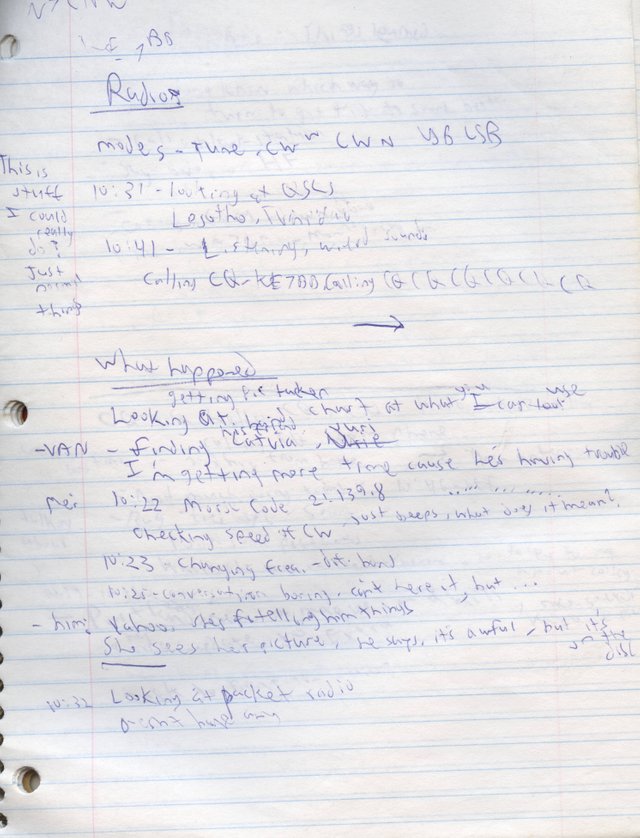 Radios
modes - Tune, CW W CWN USB LSB
This is stuff I could really do? Just normal thing
10:31 - looking at QSLs
Lesotho, Trinidad
10:41 - Listening, sounds
Calling CQ - KE7BD Calling CQ CQ CQ CQ CQ - CQ
What happened
getting pic taken
Looking at chart at what you can use
- VAN - finding Latvia,
I'm getting more time cause he's having trouble
10:22 Morse Code 21.139.8 ..... ... .....
Checking speed of CW, just beeps, what does it mean?
10:23 Changing freq. - band
10:25 - conversation boring, can't here it, but ...
- him: Yahoo, she's telling him things
She sees her picture, he says, it's awful, but it's on the disc
10:32 Looking at packet radio